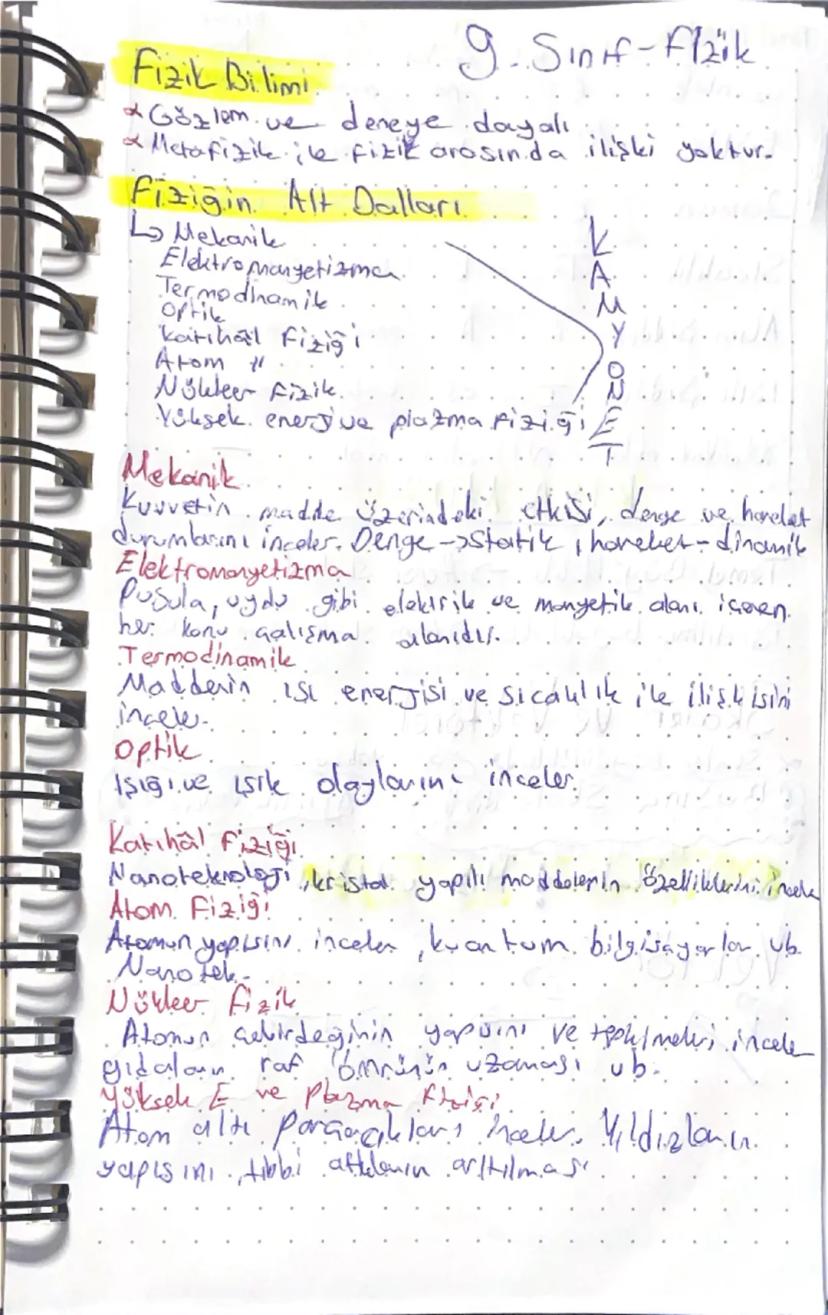 9. Sınıf - Fizik
Fizik Bilimi
∝ Gözlem ve deneye dayalı
∝ Metafizik ile fizik arasında ilişki yoktur.
Fiziğin Alt Dalları
↳ Mekanik
Elektromanyetizma
Termodinamik
Optik
Katıhâl fiziği
Atom "
Nükleer fizik
Yüksek enerji ve plazma fiziği
K
A
M
Y
O
N
E
T
Mekanik
Kuvvetin madde üzerindeki etkisi, denge ve hareket
durumlarını inceler. Denge → Statik, hareket - dinamik
Elektromanyetizma
Pusula, uydu gibi elektrik ve manyetik alanı içeren
her konu çalışma alanıdır.
Termodinamik
Maddenin ısı enerjisi ve sıcaklık ile ilişkisini
inceler.
Optik
Işığı ve ışık olaylarını inceler.
Katıhâl fiziği
Nanoteknoloji, kristal yapılı maddelerin özelliklerini inceler
Atom Fiziği
Atomun yapısını inceler, kuantum bilgisayarlar vb.
Nanotek.
Nükleer Fizik
Atomun çekirdeğinin yapısını ve inceler
gıdaların raf ömrünün uzaması vb.
Yüksek E ve Plazma Fiziği
Atom altı parçacıkları inceler. Yıldızların
yapısını, tıbbi